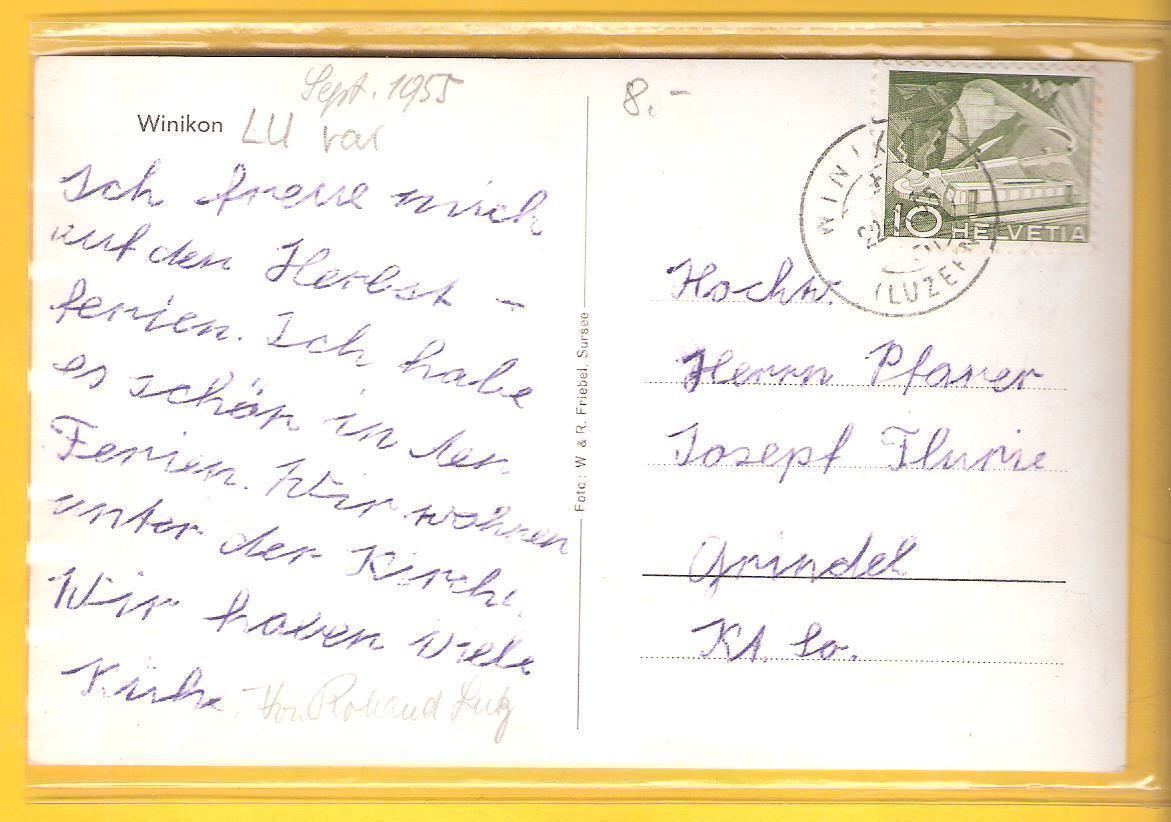 Sept. 1955
Winikon LU
Ich freue mich
auf den Herbst -
ferien. Ich habe
es schön in den
Ferien. Wir wohnen
unter der Kirche.
Wir haben viele
Kühe. Von Roland Lutz
8.-
Foto: W & R. Friebel, Sursee
WINIKON
22
(LUZERN)
10 HELVETIA
Hochw.
Herrn Pfarer
Josepf Flurie
Grindel
Kt. So.